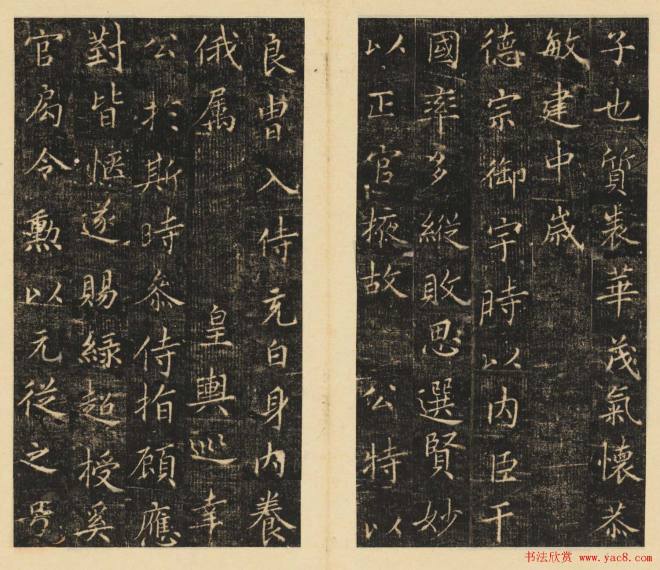 子也質表華茂氣懷恭
敏建中歳
德宗御宇時以内臣干
國率多縱敗思選賢妙
以正官掖故 公特以
良胄入侍充白身内養
俄属 皇輿巡幸
公於斯時參侍指顧應
對皆愜遂賜緑超授奚
官局令勲以元從之号
书法欣赏 www.yac8.com